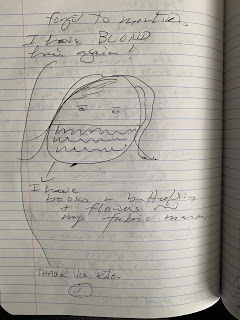 forgot to mention.
I have BLOND
hair again!
I have
books + butterflies
+ flowers on
my fabric
THANK YOU,